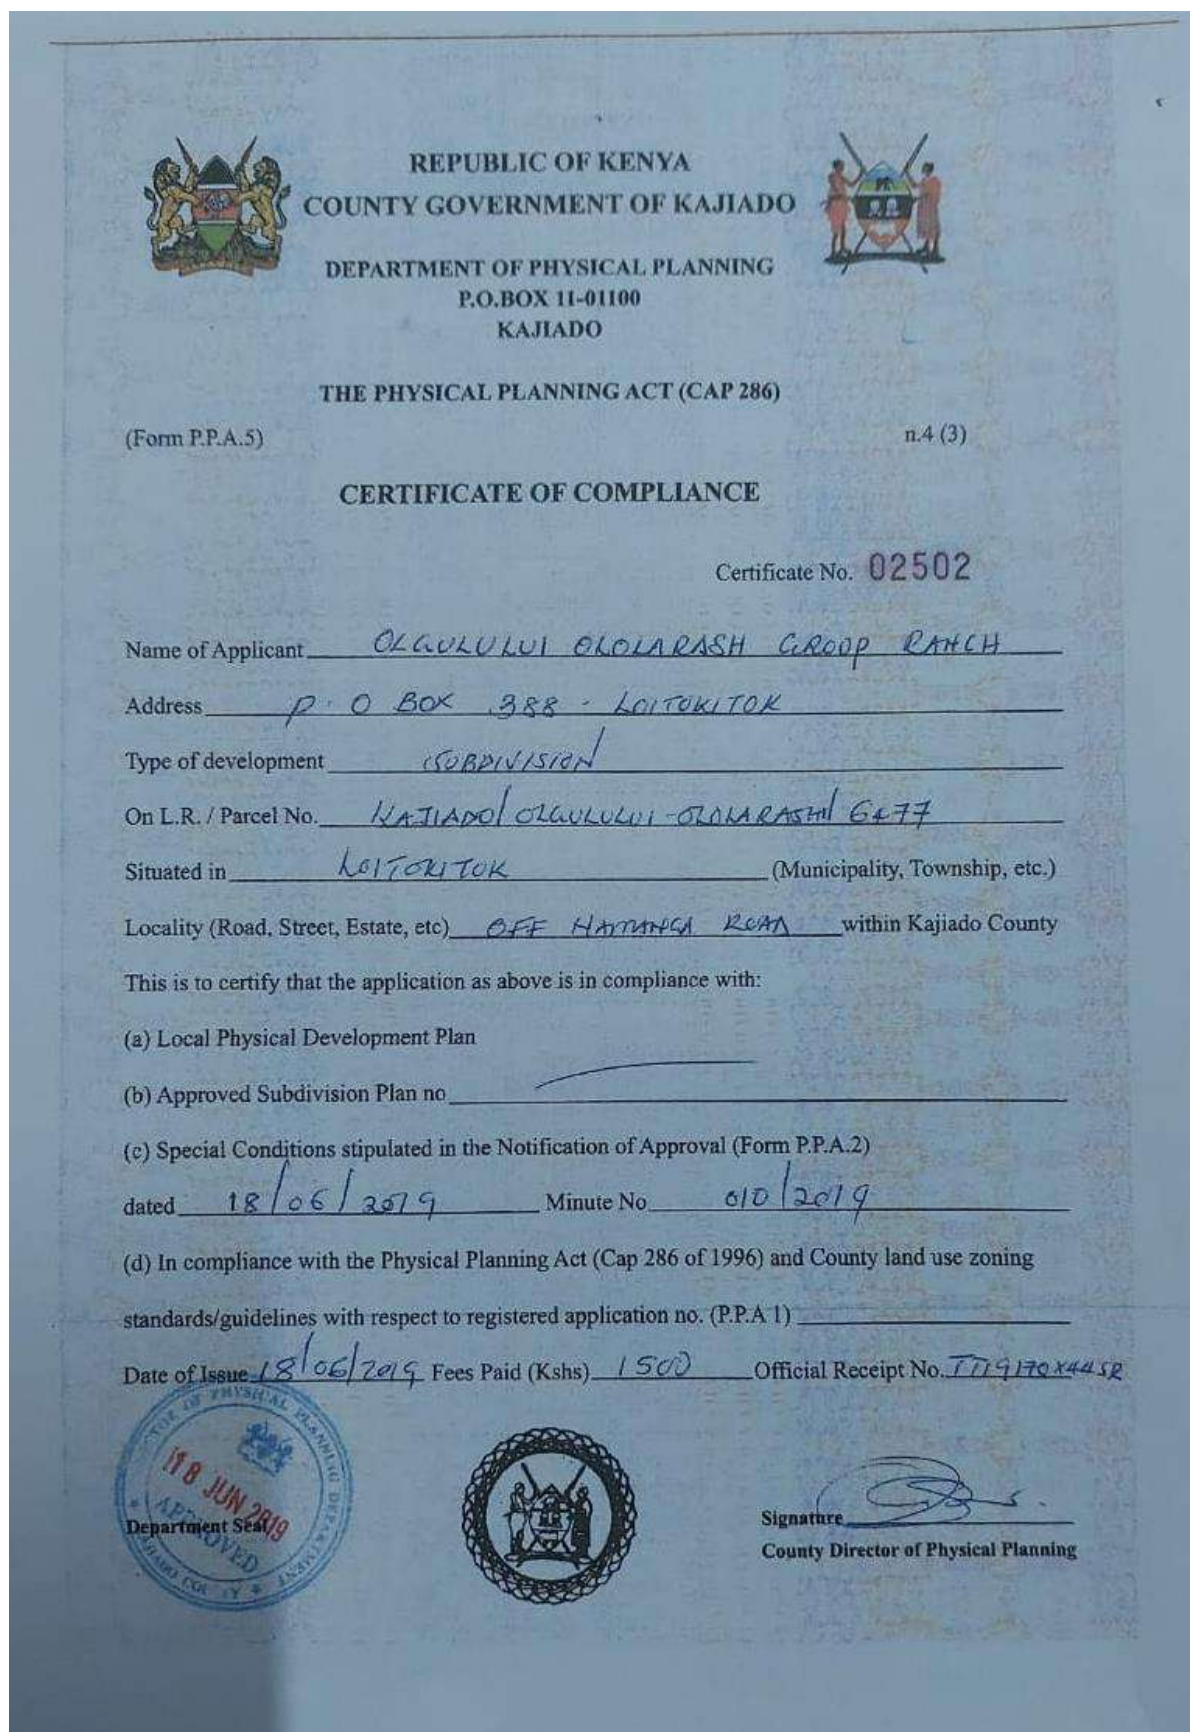 REPUBLIC OF KENYA
COUNTY GOVERNMENT OF KAJIADO
DEPARTMENT OF PHYSICAL PLANNING
P.O.BOX 11-01100
KAJIADO
THE PHYSICAL PLANNING ACT (CAP 286)
(Form P.P.A.5) n.4 (3)
CERTIFICATE OF COMPLIANCE
Certificate No. 02502
Name of Applicant OLGULULUI OLOLARASH GROUP RANCH
Address P.O BOX 388 - LOITOKITOK
Type of development SUBDIVISION
On L.R. / Parcel No. KAJIADO/OLGULULUI-OLOLARASHI/ 6477
Situated in LOITOKITOK (Municipality, Township, etc.)
Locality (Road, Street, Estate, etc) OFF ROAD within Kajiado County
This is to certify that the application as above is in compliance with:
(a) Local Physical Development Plan
(b) Approved Subdivision Plan no
(c) Special Conditions stipulated in the Notification of Approval (Form P.P.A.2)
dated 18/06/2019 Minute No 010/2019
(d) In compliance with the Physical Planning Act (Cap 286 of 1996) and County land use zoning
standards/guidelines with respect to registered application no. (P.P.A 1)
Date of Issue 18/06/2019 Fees Paid (Kshs) 1500 Official Receipt No.
18 JUN 2019
APPROVED
Department Seal
Signature
County Director of Physical Planning